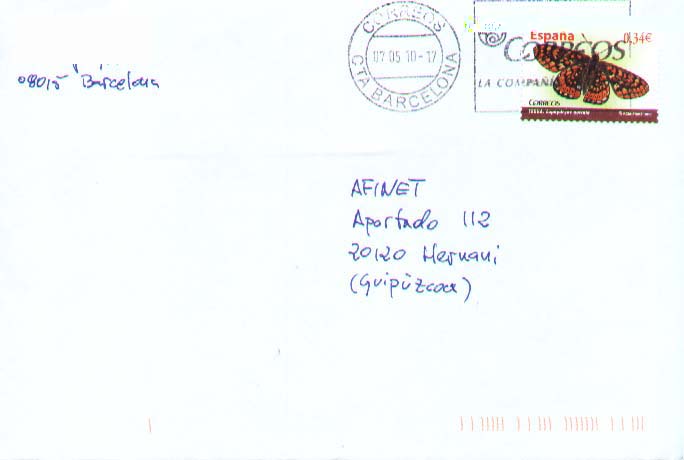 CORREOS
07 05 10-17
CTA BARCELONA
CORREOS
LA COMPAÑ
España
0,34€
CORREOS
08015 Barcelona
AFINET
Apartado 112
20120 Hernani
(Guipúzcoa)